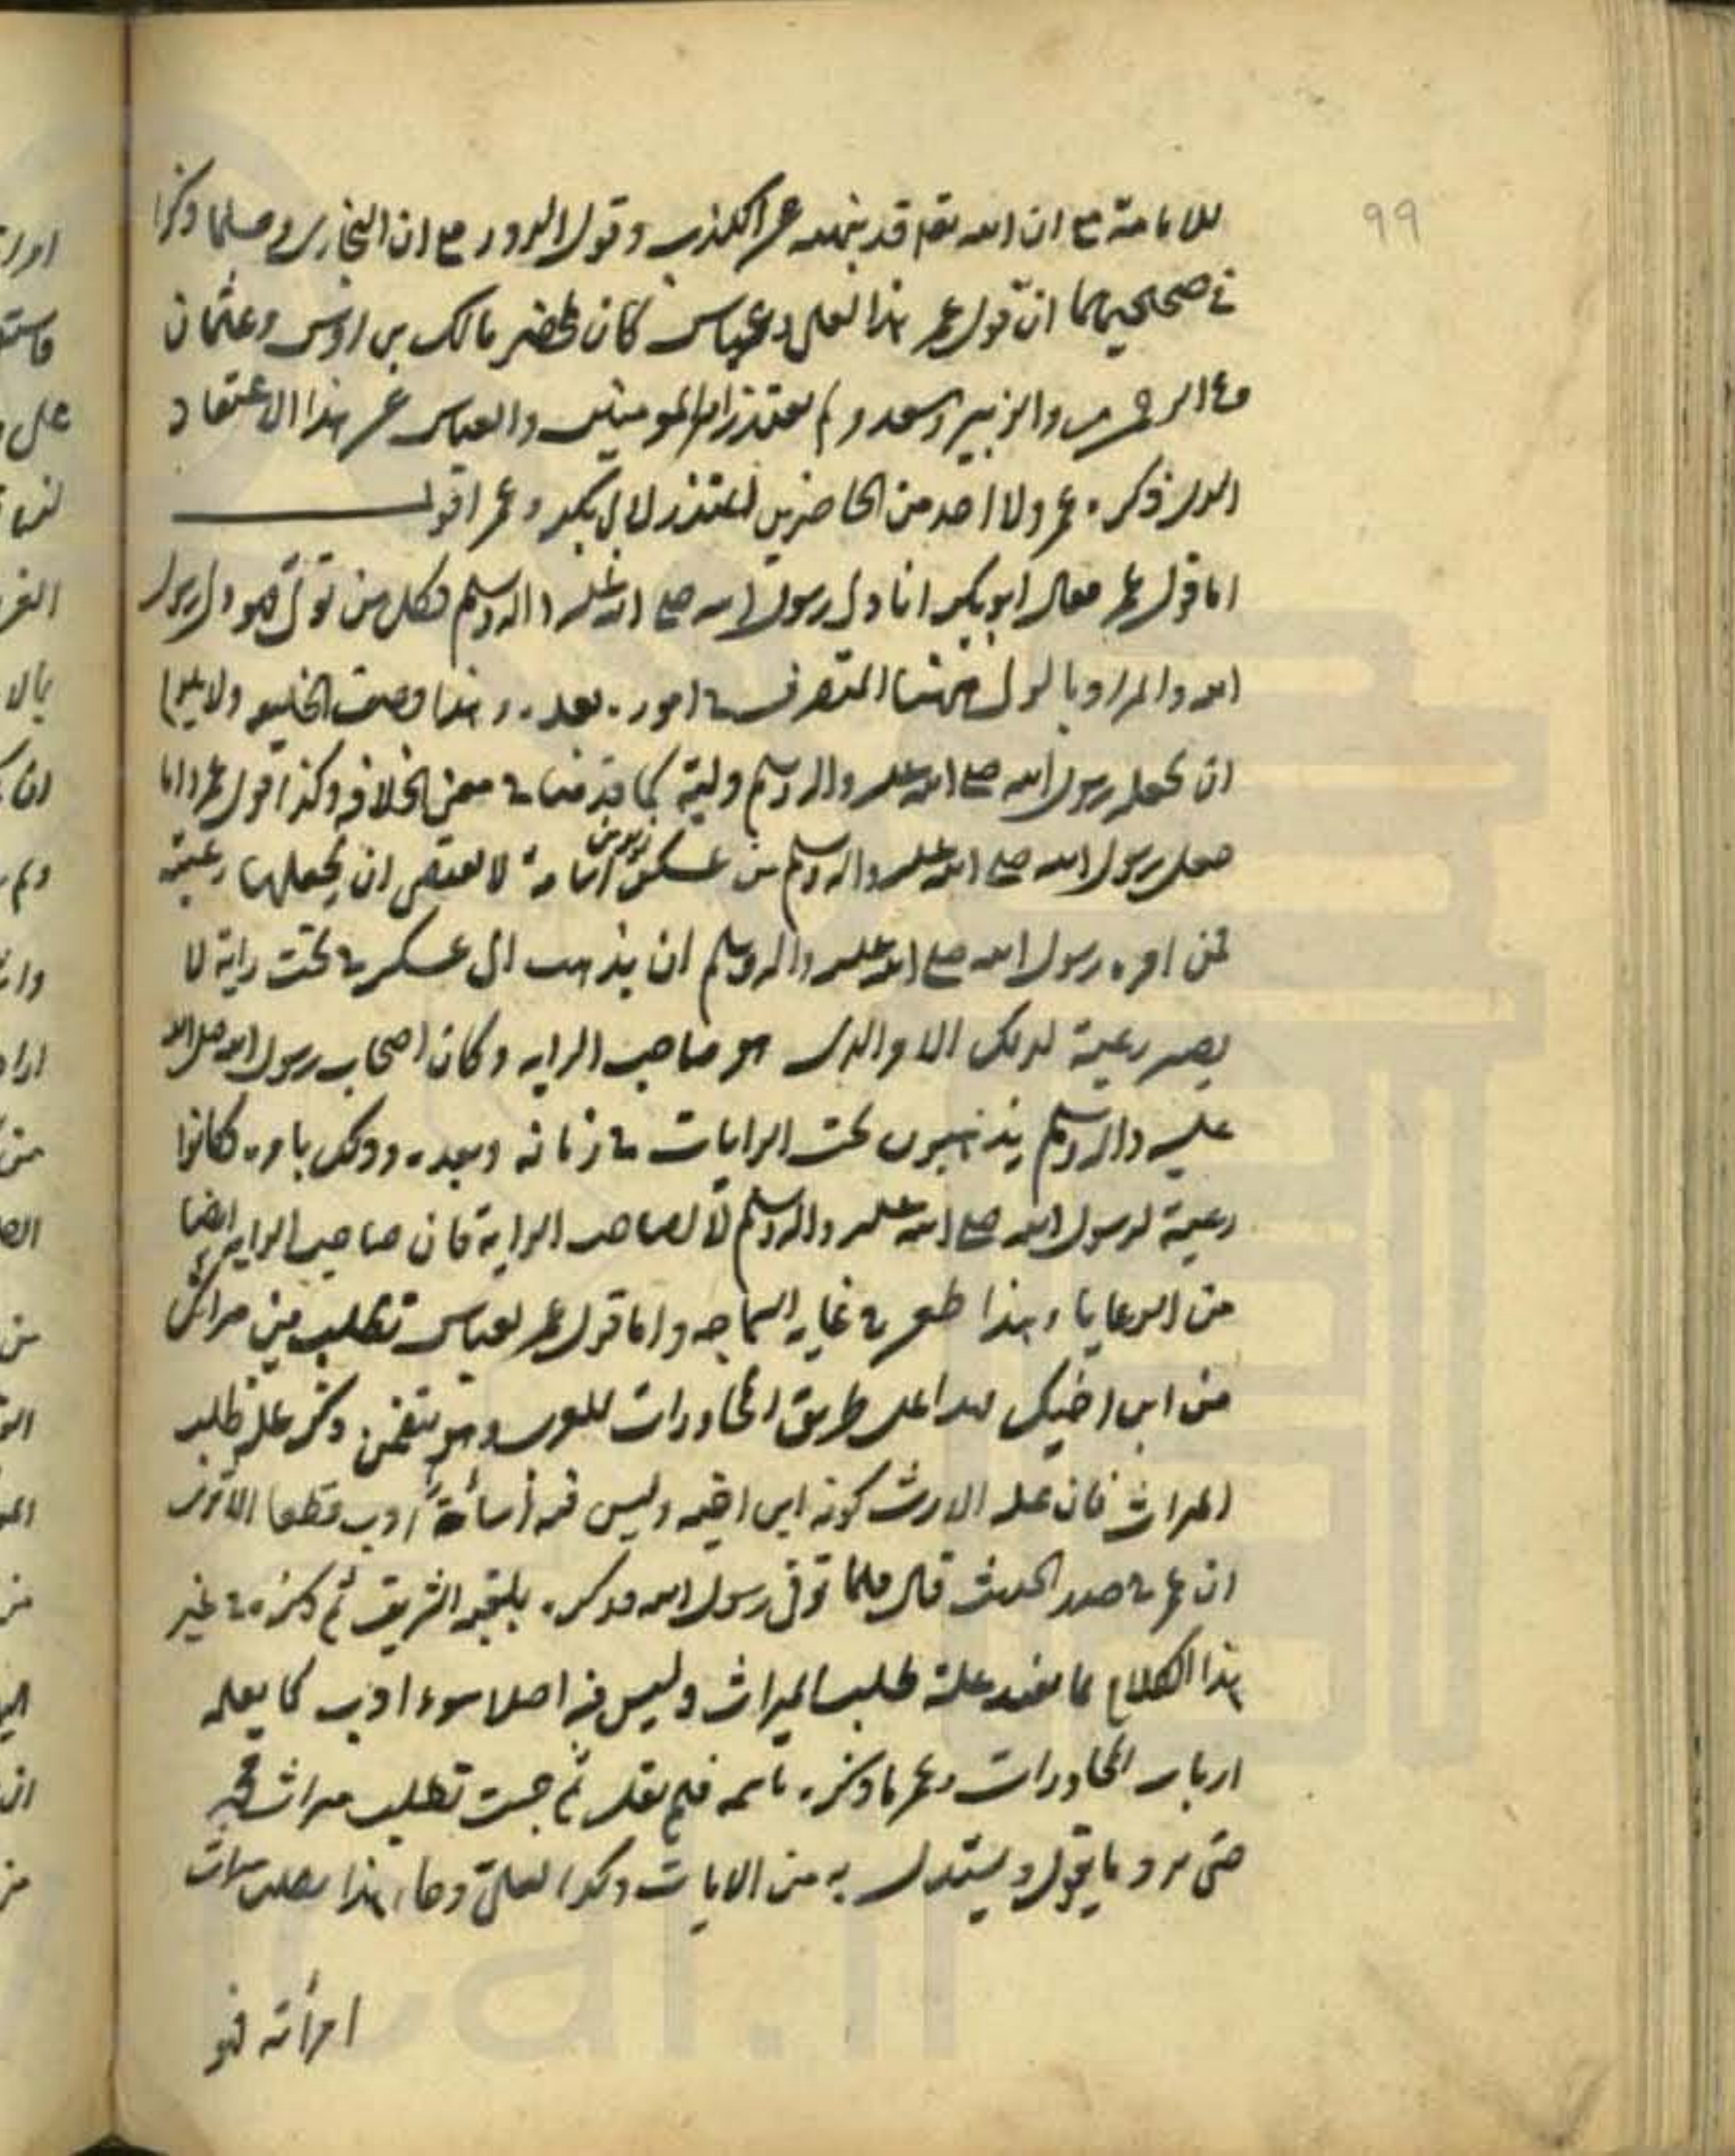 99
للامامة مع ان الله تعم قد نهاه عن الكذب وقول الزور مع ان البخاري ومسلما ذكرا
في صحيحيهما ان قول عمر هذا لعلي وعباس كان بمحضر مالك بن اوس وعثمان
وعبد الرحمن والزبير وسعد ولم يعتذر امير المومنين والعباس عن هذا الاعتقاد
الذي ذكره عمر ولا احد من الحاضرين اعتذر لابي بكر وعمر اقول
اما قول عمر فقال ابو بكر انا ولي رسول الله صلع الله عليه واله وسلم فكل من تولى فهو ولي رسول
الله والمراد بالولي ههنا المتصرف في اموره بعده وهذا وصف الخليفه ولا يلزم
ان يجعله رسول الله صلع الله عليه واله وسلم وليه كما قدمنا في معنى الخلافه وكذا قول عمر واما
جعل رسول الله صلع الله عليه واله وسلم من عسكر اسامة لا يقتضي ان يجعلهما رعية
فمن امره رسول الله صلع الله عليه واله وسلم ان يذهب الى عسكر في تحت راية لا
يصير رعية لذلك الامر الذي هو صاحب الرايه وكان اصحاب رسول الله صلى الله
عليه واله وسلم يذهبون تحت الرايات في زمانه وبعده وذلك بامره وكانوا
رعية لرسول الله صلع الله عليه واله وسلم لا لصاحب الراية فان صاحب الراية ايضا
من الرعايا وهذا طعن في غايه السماجه واما قول عمر لعباس تطلب من ميراثك
من ابن اخيك هذا على طريق المحاورات للعرب وهو يتضمن ذكر علة طلبه
الميراث فان علة الارث كونه ابن اخيه وليس فيه أساءة أدب قطعا الا ترى
ان عمر في صدر الحديث قال فلما توفى رسول الله فذكره بلقبه الشريف ثم ذكره في غير
هذا الكلام بما يفيد علة طلب الميراث وليس فيه اصلا سوء ادب كما يعلمه
ارباب المحاورات وعمر ما ذكره باسمه فلم يقل ثم جئت تطلب ميراث محمد
حتى يرد ما يقول ويستدل به من الايات وكذا لعلي وجاء هذا يطلب ميراث
امرأته فهو